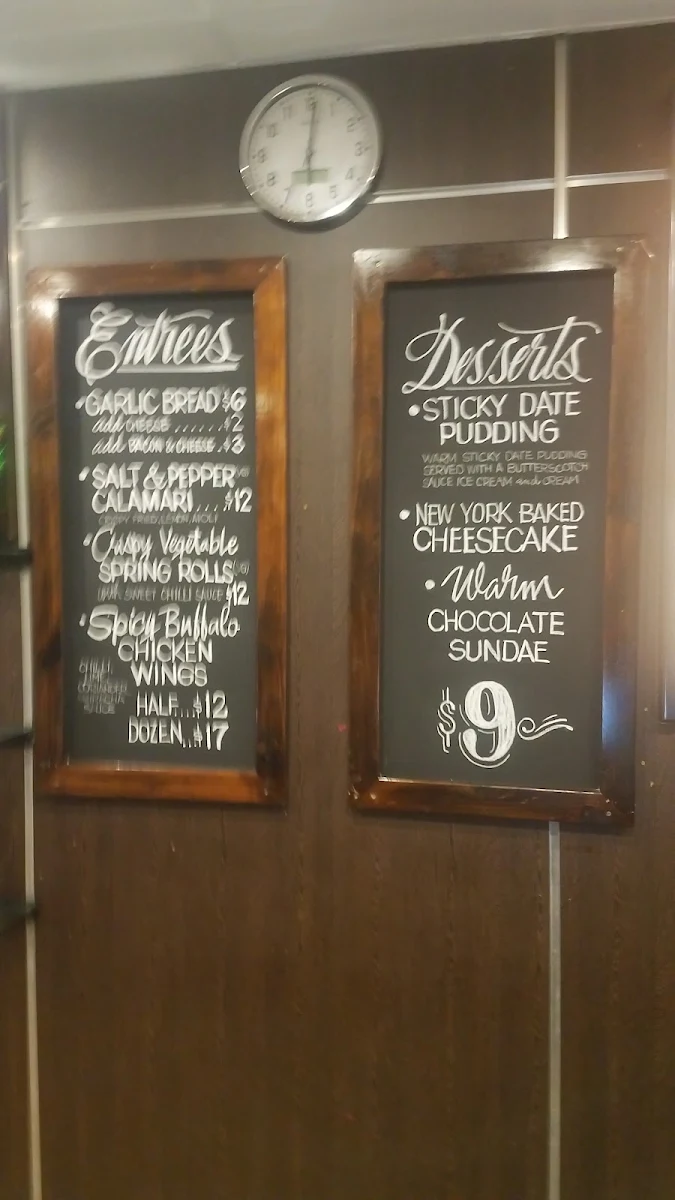 Entrees
• GARLIC BREAD $6
add CHEESE ...... $2
add BACON & CHEESE . $3
• SALT & PEPPER
CALAMARI .... $12
CRISPY FRIED, LEMON, AIOLI
• Crispy Vegetable
SPRING ROLLS
with SWEET CHILLI SAUCE $12
• Spicy Buffalo
CHICKEN
WINGS
CHILLI
LIME
CORIANDER
SRIRACHA
SAUCE
HALF ... $12
DOZEN .. $17
Desserts
• STICKY DATE
PUDDING
WARM STICKY DATE PUDDING
SERVED WITH A BUTTERSCOTCH
SAUCE ICE CREAM and CREAM
• NEW YORK BAKED
CHEESECAKE
• Warm
CHOCOLATE
SUNDAE
$9